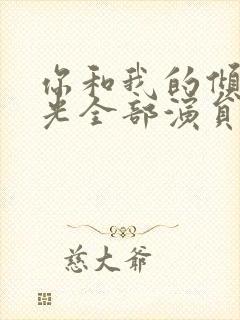 你和我的倾
光全部演员
慈大爷